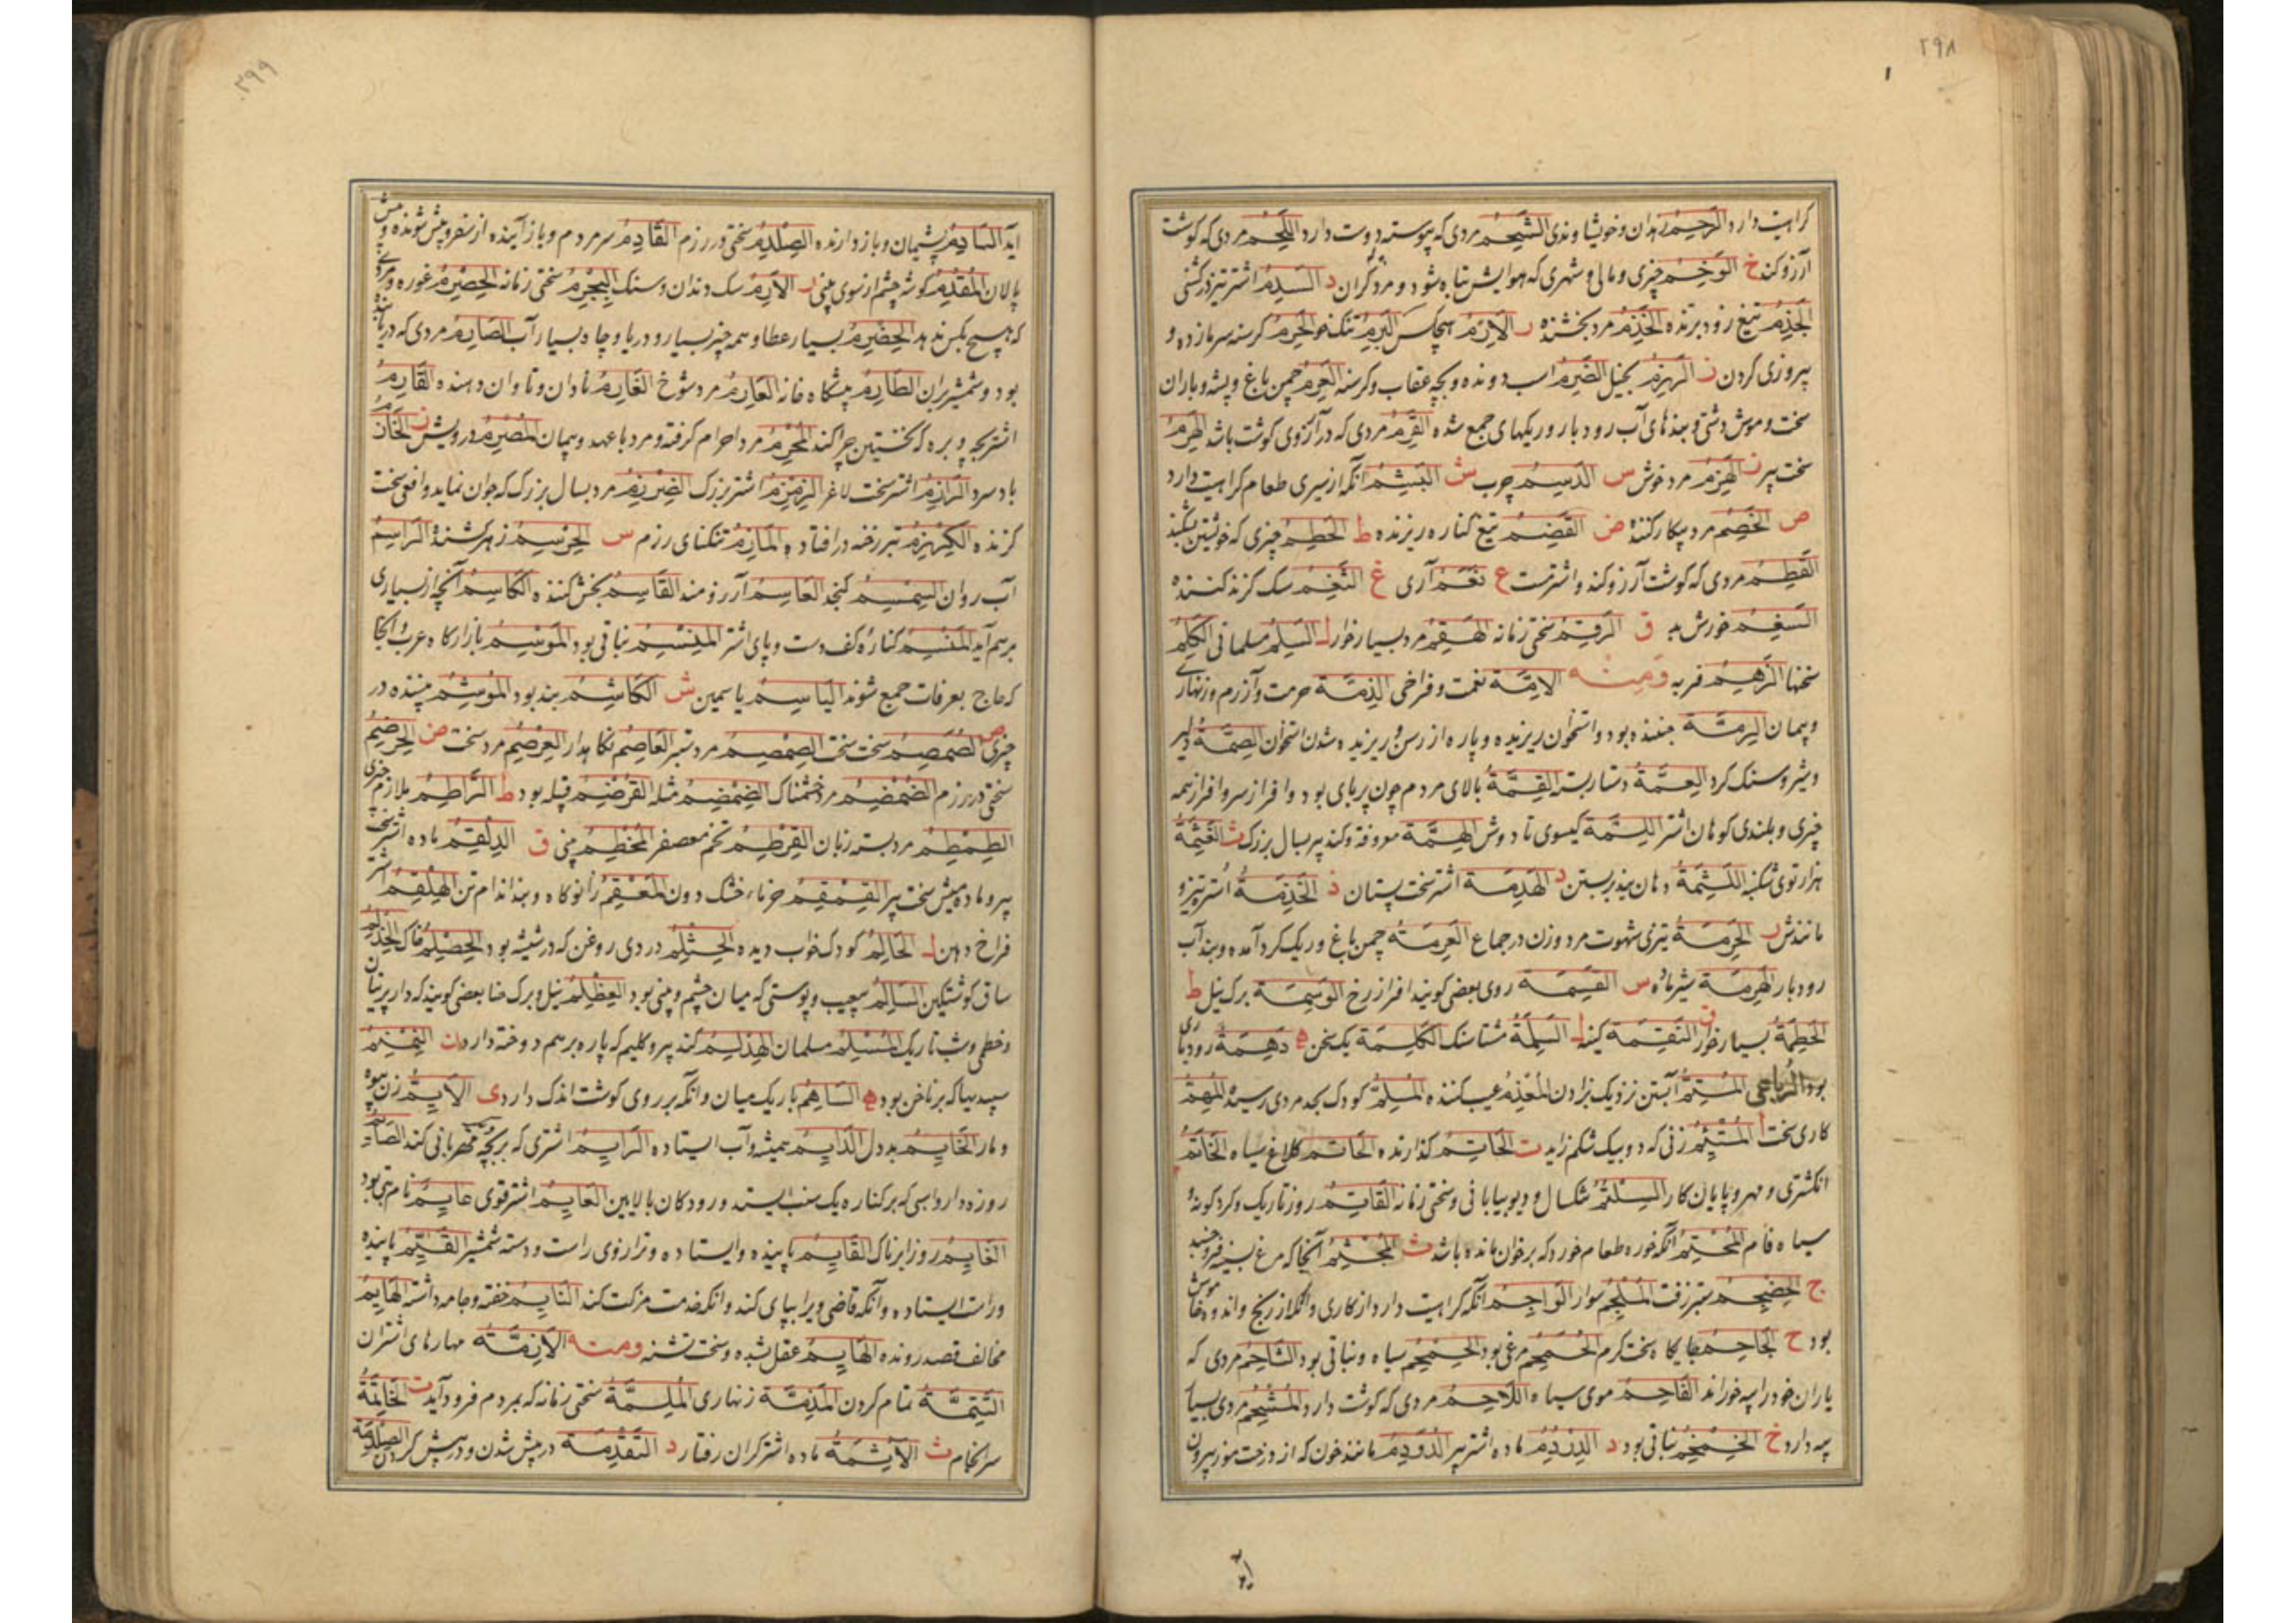 ۲۹۸
کراهیت دارد الرَّحِمُ زهدان وخویشاوندی الشَّحِمُ مردی که پیوسته دوست دارد اللَّحِمُ مردی که گوشت
آرزو کند خ الوَخِمُ چیزی و مالی و شهری که هوایش تباه شود و مرد گران د السَّدِمُ اشتر تیز در گشنی
الجَذِمُ تیغ زود برنده الخَذِمُ مرد بخشنده ر الاَرِمُ هیچکس البَرِمُ تنک خو الحَرِمُ گرسنه سرمازده و
پیروزی کردن ز الرَّهِزِمُ بخیل الضَّرِمُ اسب دونده و بچه عقاب و گرسنه العَرِمُ چمن باغ و پشه و باران
سخت و موش دشتی و بندهای آب رودبار و ریکهای جمع شده القَرِمُ مردی که در آرزوی گوشت باشد الهَرِمُ
سخت پیر ز الهَزِمُ مرد خوش س الدَّسِمُ چرب ش البَشِمُ آنکه از سیری طعام کراهیت دارد
ص الخَصِمُ مرد پیکار کننده ض القَضِمُ تیغ کناره ریزنده ط الحَطِمُ چیزی که خویشتن بشکند
القَطِمُ مردی که گوشت آرزو کند و اشتر مست ع نَعَم آری غ النَّغِمُ سک گزند کننده
السَّغِمُ خورش بد ق الرَّقِمُ سختی زمانه الهَقِمُ مرد بسیار خوار ل السَّلِمُ مسلمانی الکَلِمُ
سخنها الزَّهِمُ فربه ومنه الاِمَّة نعمت و فراخی الذِّمَّة حرمت و آزرم و زنهار
و پیمان الرِّمَّة جغنده بود و استخوان ریزیده و پاره از رسن و ریزیده شدن استخوان الصِّمَّة دلیر
و شیر و سنک کرد العِمَّة دستار بستن القِمَّة بالای مردم چون بر پای بود و افراز سر و افراز همه
چیزی و بلندی کوهان اشتر اللِّمَّة گیسوی تا دوش الهِمَّة معروفة و کنده پیر بسال بزرک ث الغَثِمَة
هزار توی شکنبه اللَّثِمَة دهان بند بر بستن د الهَدِمَة اشتر سخت پستان ذ الخَذِمَة اشتر تیزرو
مانندش ر الحَرِمَة تیزی شهوت مرد و زن در جماع العَرِمَة چمن باغ و ریک گرد آمده و بند آب
رودبار الهَرِمَة شیر ماده س القَسِمَة روی بعضی گویند افراز رخ الوَسِمَة برک نیل ط
الحَطِمَة بسیار خوار ق النَّقِمَة کینه ل السَّلِمَة مشتاسنک الکَلِمَة یک سخن ه دَهِمَة رودباری
بود الرباعی المُتِمُّ آبستن نزدیک بزادن المُعْذِمُ عیب کننده المُلِمُّ کودک بحد مردی رسیده المُهِمُّ
کاری سخت أ المُتْئِمُ زنی که دو بیک شکم زاید ت الحَاتِمُ گذارنده الحَاتَم کلاغ سیاه الخَاتَمُ
انگشتری و مهر و پایان کار السِّلْتِمُ خشکسال و دیو بیابانی و سختی زمانه القَاتِمُ روز تاریک و گرد گونه
سیاه فام المُحْتِمُ آنکه خورده طعام خورد که بر خوان مانده باشد ث المُجْثِمُ آنجا که مرغ بسینه فرو خسبد
ج الحِضْجِمُ ستبر زفت المُلْجِمُ سوار الوَاجِمُ آنکه کراهیت دارد از کاری و آنکه از رنج و اندوه خاموش
بود ح الجَاحِمُ جایگاه سخت گرم الحُمْحِمُ مرغی بود الحِمْحِمُ سیاه و نباتی بود الشَّاحِمُ مردی که
یاران خود را پیه خوراند الفَاحِمُ موی سیاه اللَّاحِمُ مردی که گوشت دارد المُشْحِمُ مردی بسیار
پیه دارد خ الخِمْخِمُ نباتی بود د الدِّرْدِمُ ماده اشتر پیر الدُّوَدِمُ مانند خون که از درخت موز بیرون
آید
۲۹۹
آید النَّادِمُ پشیمان و باز دارنده الصِّلْدِمُ سختی در رزم القَادِمُ سر مردم و باز آینده از سفر و پیش شونده و پیش
پالان المُقْدِمُ گوشه چشم از سوی بینی ر الاَرِمُ سک دندان و سنک البُجْرِمُ سختی زمانه الحِصْرِمُ غوره و مردی
که هیچ بکس ندهد الخِضْرِمُ بسیار عطا و همه چیز بسیار و دریا و چاه بسیار آب الصَّارِمُ مردی که در یابنده
بود و شمشیر بران الطَّارِمُ پیشگاه خانه العَارِمُ مرد شوخ الغَارِمُ نادان و تاوان دهنده القَارِمُ
اشتر بچه و بره که نخستین چرا کند المُحْرِمُ مرد احرام گرفته و مرد با عهد و پیمان المُصْرِمُ درویش ز الخَازِمُ
باد سرد الرَّازِمُ اشتر سخت لاغر الزِّمْزِمُ اشتر بزرک الضِّرْزِمُ مرد بسال بزرک که جوان نماید و افعی سخت
گزنده الکِهْزِمُ تبر رخنه در افتاده المَازِمُ تنکنای رزم س الحِرْسِمُ زهر کشنده الرَّاسِمُ
آب روان السِّمْسِمُ کنجد العَاسِمُ آرزومند القَاسِمُ بخش کننده الکَاسِمُ آنچه از بسیاری
برهم آید المَنْسِمُ کناره کف دست و پای اشتر المِیْسَمُ نباتی بود المَوْسِمُ بازارگاه عرب و آنجا
که حاج بعرفات جمع شوند الیَاسِمُ یاسمین ش الکَاشِمُ بند بود المُوشِمُ بیننده در
چیزی ص الصُّمَصِمُ سخت سخت الصِّمْصِمُ مرد ستبر العَاصِمُ نگاهدار العِرْصِمُ مرد سخت ض الحِرْضِمُ
سختی در رزم الضُّمَضِمُ مرد خشمناک الضِّمْضِمُ مثله القِرْضِمُ قبیله بود ط الرَّاطِمُ ملازم چیزی
الطِّمْطِمُ مرد بسته زبان القِرْطِمُ تخم معصفر المَخْطِمُ بینی ق الدِّلْقِمُ ماده اشتر سخت
پیر و ماده میش سخت پیر القِمْقِمُ خرماء خشک دون المَعْقِمُ زانوگاه و بند اندام تن الهِلْقِمُ اشتر
فراخ دهن ل الحَالِمُ کودک خواب دیده الحِثْلِمُ دردی روغن که در شیشه بود الحِصْلِمُ خاک الخَذْلِمُ
ساق گوشتگین السَّالِمُ بیعیب و پوستی که میان چشم و بینی بود العِظْلِمُ نیل و برک حنا بعضی گویند که دار پرنیان
و خطمی و شب تاریک المُسْلِمُ مسلمان الهِدْلِمُ کنده پیر و گلیم که پاره برهم دوخته دارد ن النِّمْنِمُ
سپیدیها که بر ناخن بود ه السَّاهِمُ باریک میان و آنکه بر روی گوشت اندک دارد ی الاَیِّمُ زن بیوه
و مار الخَایِمُ بددل الدَّایِمُ همیشه و آب ایستاده الرَّایِمُ اشتری که بر بچه مهربانی کند الصَّائِمُ
روزه دار و اسبی که بر کناره یک سنب ایستد و رودگان بالایین العَایِمُ اشتر قوی عایم نام بتی بود
الغَایِمُ روز ابرناک القَایِمُ پاینده و ایستاده و ترازوی راست و دسته شمشیر القَیِّمُ پاینده
و راست ایستاده و آنکه قاضی ویرا بپای کند و آنکه خدمت مزکت کند النَّایِمُ خفته و جامه داشته الهَایِمُ
مخالف قصد رونده الهَایِمُ عقل شده و سخت تشنه ومنه الاَزِمَّة مهارهای اشتران
التَّتِمَّة تمام کردن المَذِمَّة زنهاری المُلِمَّة سختی زمانه که بمردم فرود آید ت الخَاتِمَة
سرانجام ث الآثِمَة ماده اشتر گران رفتار د التَّقْدِمَة در پیش شدن و در پیش کردن الصِّلْدِمَة